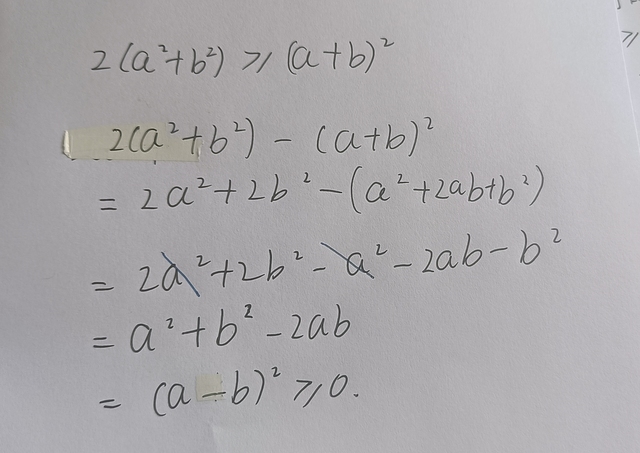 2(a²+b²) ⩾ (a+b)²
2(a²+b²) - (a+b)²
= 2a²+2b²-(a²+2ab+b²)
= 2a²+2b²-a²-2ab-b²
= a²+b²-2ab
= (a-b)² ⩾0.